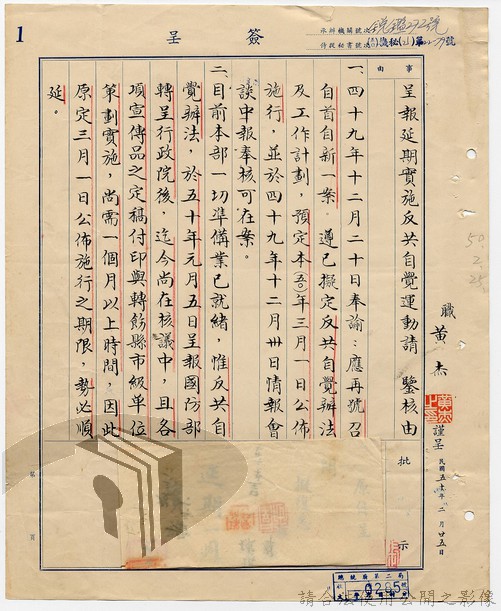 簽呈
承辦機關號次
銳鑑292號
侍從秘書號次
1
事由
呈報延期實施反共自覺運動請 鑒核由
一、四十九年十二月二十日奉諭：應再號召
自首自新一案。遵已擬定反共自覺辦法
及工作計劃，預定本(五〇)年三月一日公佈
施行，並於四十九年十二月卅日情報會
談中報奉核可在案。
二、目前本部一切準備業已就緒，惟反共自
覺辦法，於五十年元月五日呈報國防部
轉呈行政院後，迄今尚在核議中，且各
項宣傳品之定稿付印與轉飭縣市級單位
策劃實施，尚需一個月以上時間，因此
原定三月一日公佈施行之期限，勢必順
延。
職 黃杰 謹呈
民國五十年二月廿五日
批示
50.2.25
總統府第二局
0285
請合法使用公開之影像